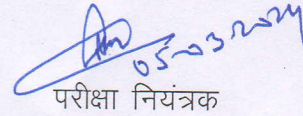 05-03-2024
परीक्षा नियंत्रक